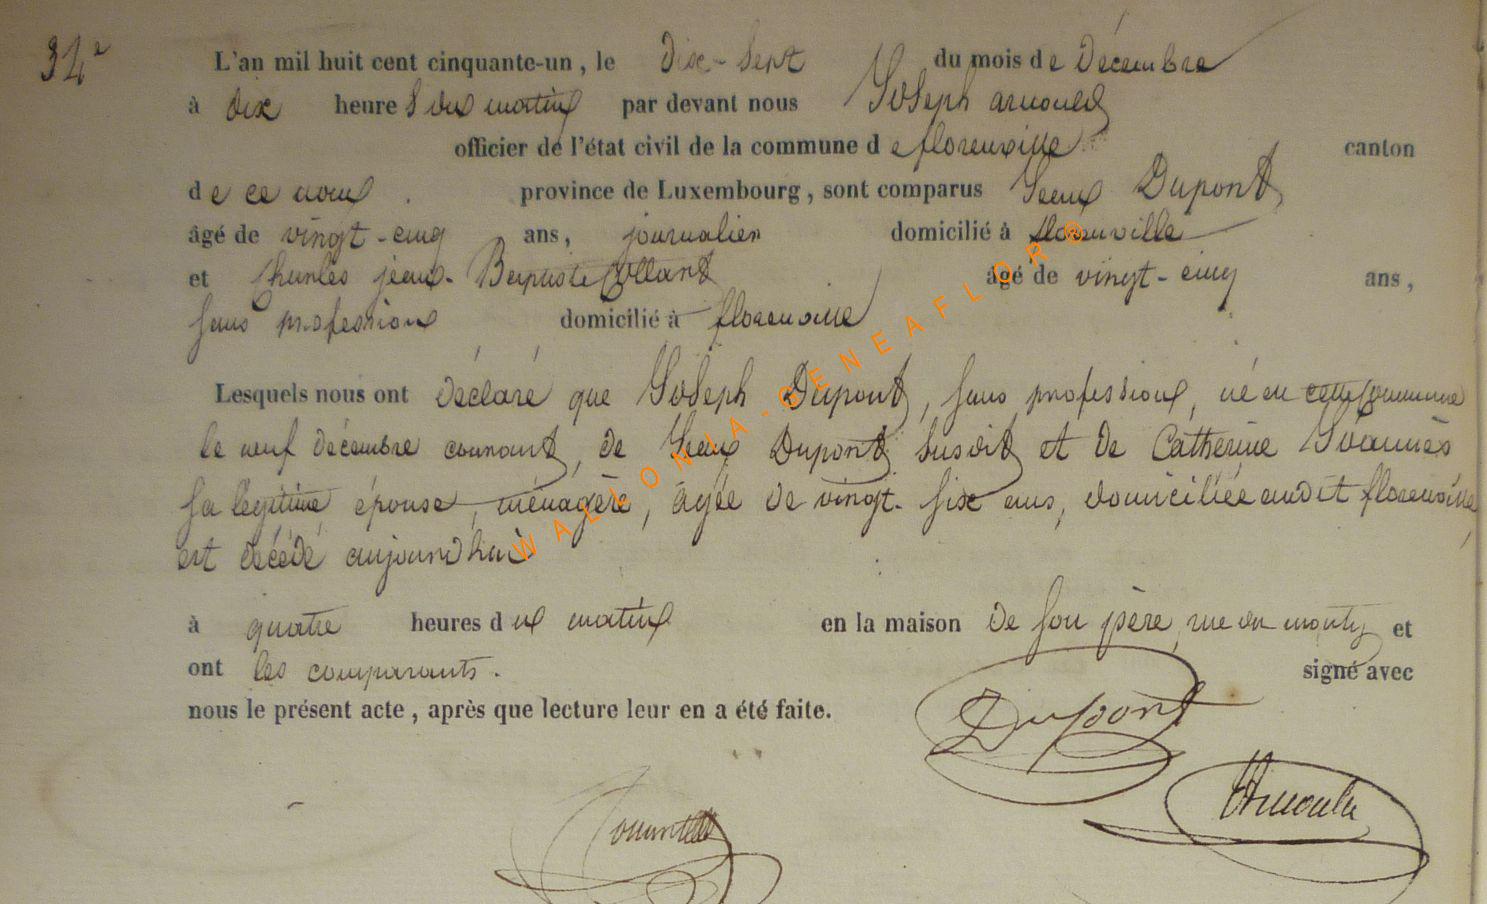 34e
L'an mil huit cent cinquante-un, le dix-sept du mois de Décembre
à dix heures du matin par devant nous Joseph arnould
officier de l'état civil de la commune de florenville canton
de ce nom. province de Luxembourg, sont comparus Jean Dupont
âgé de vingt-cinq ans, journalier domicilié à florenville
et Charles jean-Baptiste Collard âgé de vingt-cinq ans,
sans profession domicilié à florenville
Lesquels nous ont déclaré que Joseph Dupont, sans profession, né en cette commune
le neuf décembre courant, de Jean Dupont susdit et de Catherine
sa légitime épouse, ménagère, agée de vingt-six ans, domiciliée audit florenville,
est décédé aujourd'hui
à quatre heures du matin en la maison de son père, rue du et
ont les comparants. signé avec
nous le présent acte, après que lecture leur en a été faite.
Dupont
Arnould
WALLONIA-GENEAFLOR®